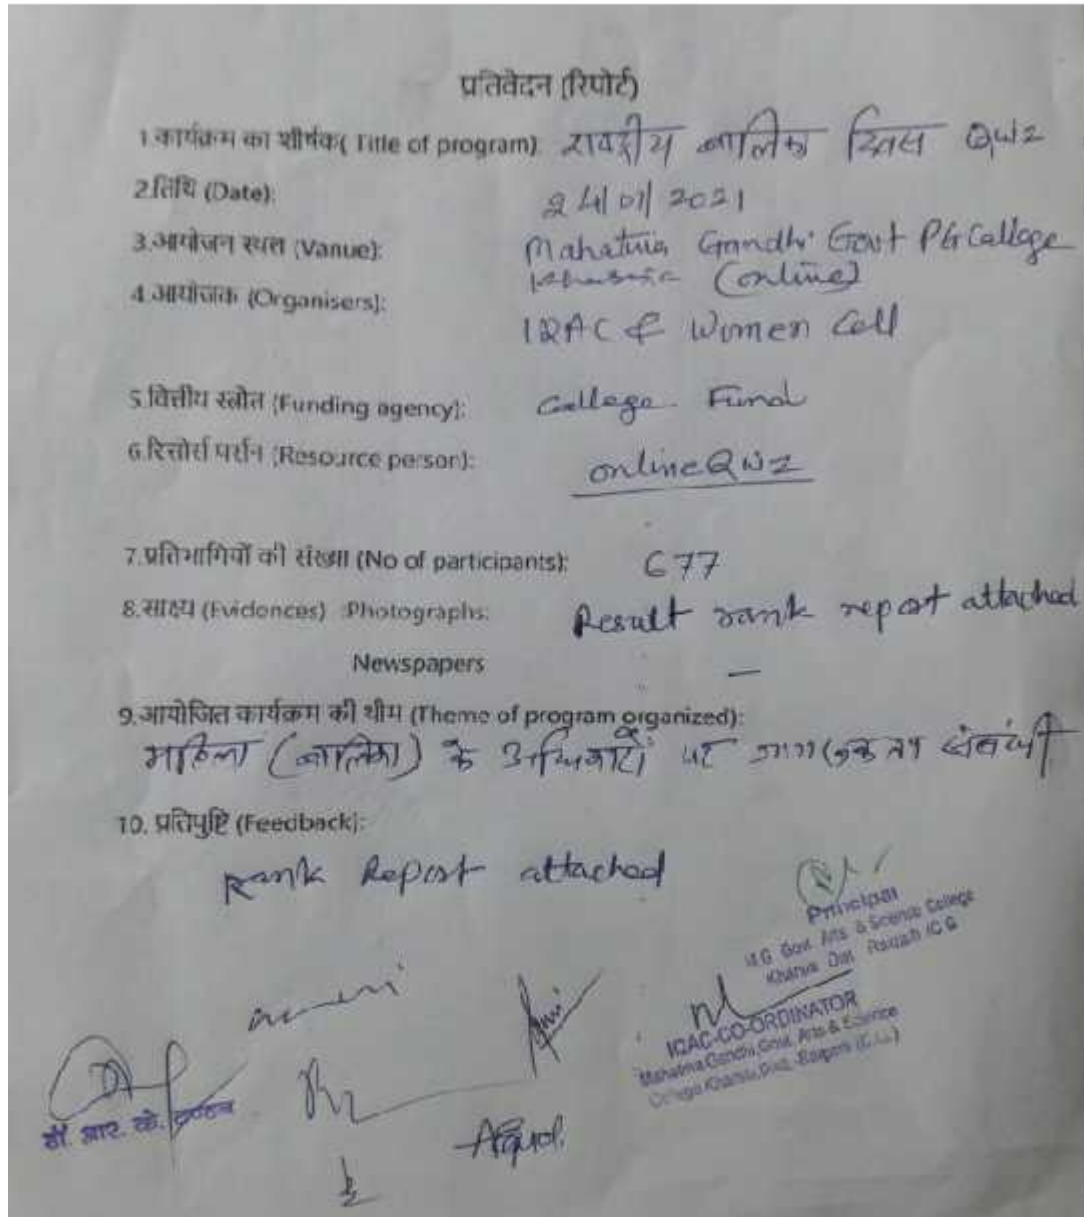 प्रतिवेदन (रिपोर्ट)
1.कार्यक्रम का शीर्षक( Title of program): राष्ट्रीय बालिका दिवस Quiz
2.तिथि (Date): 24/01/2021
3.आयोजन स्थल (Vanue): Mahatma Gandhi Govt PG College
Kharsia (online)
4.आयोजक (Organisers]:
IQAC & Women Cell
5.वित्तीय स्त्रोत (Funding agency): College Fund
6.रिसोर्स पर्सन (Resource person): online Quiz
7.प्रतिभागियों की संख्या (No of participants): 677
8.साक्ष्य (Evidences) :Photographs: Result rank report attached
Newspapers —
9.आयोजित कार्यक्रम की थीम (Theme of program organized):
महिला (बालिका) के अधिकारों पर जागरूकता संबंधी
10. प्रतिपुष्टि (Feedback):
Rank Report attached
Principal
M.G. Govt. Arts & Science College
Kharsia Dist. Raigarh (C.G.
IQAC-CO-ORDINATOR
Mahatma Gandhi Govt. Arts & Science
College Kharsia, Dist.-Raigarh (C.G.)
डॉ. आर. के.